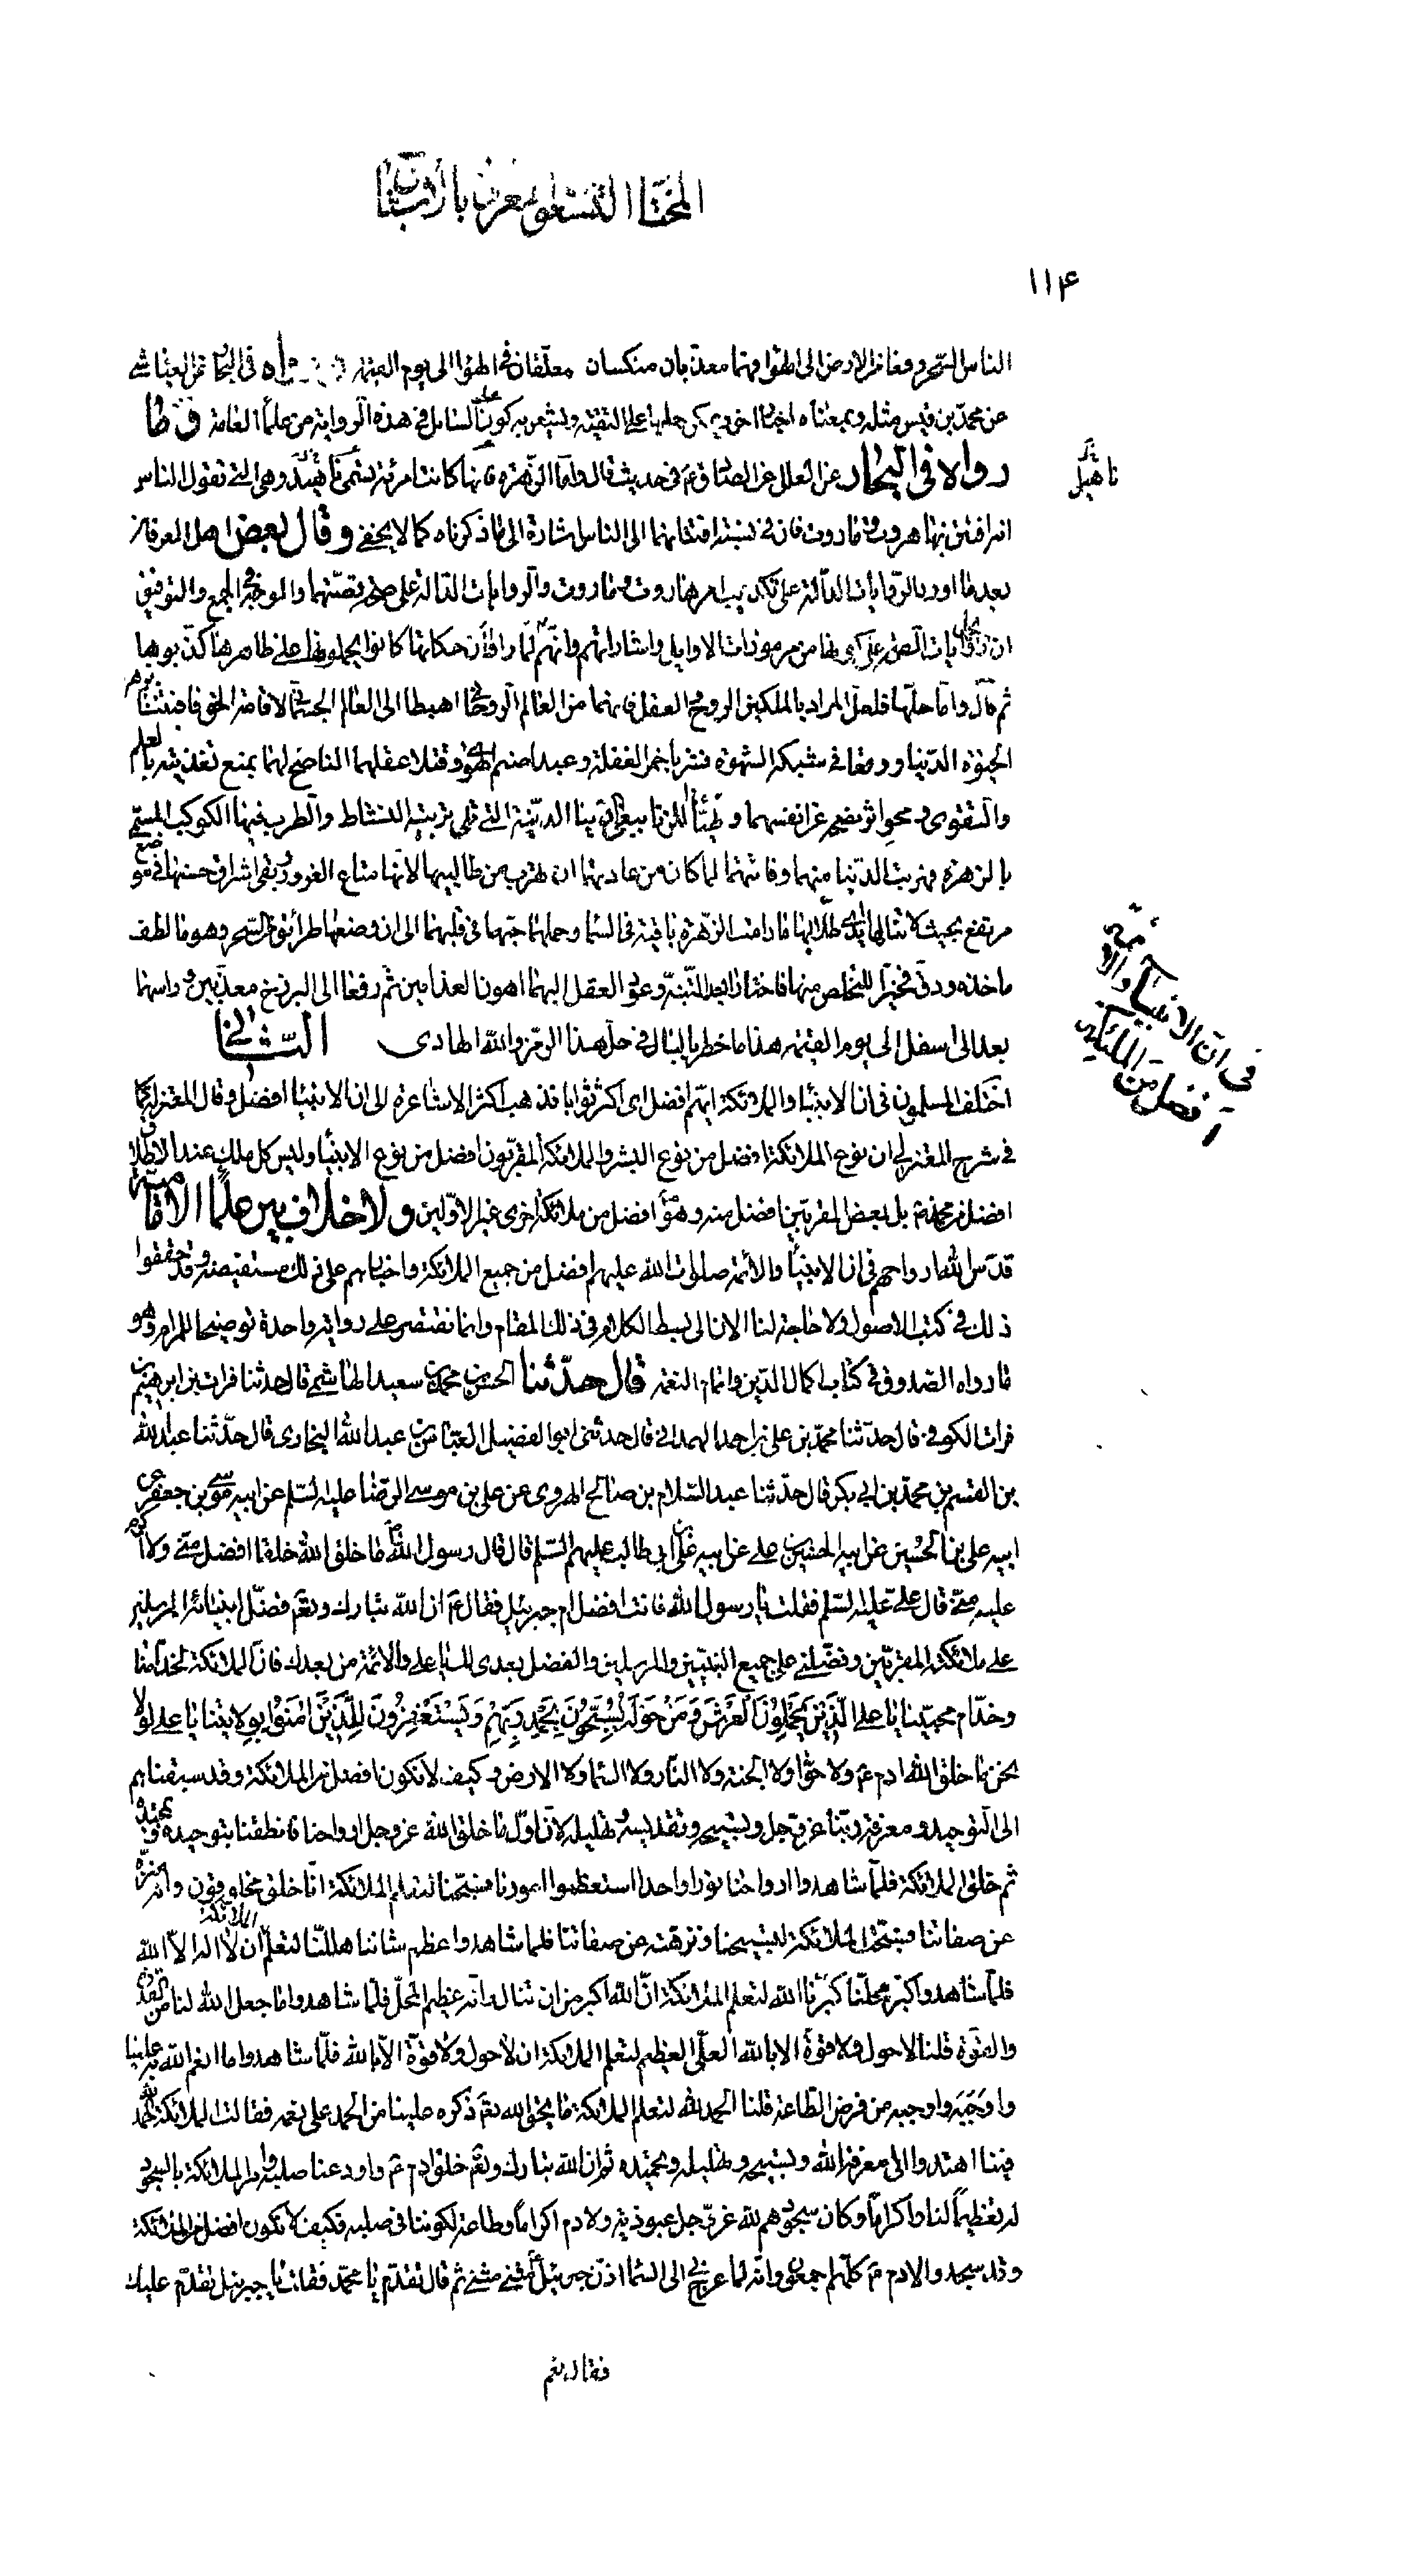 المختار التسعون معرفت بارئ
١١۴
الناس السحر رفعا من الارض الى الهواء فهما معذبان منكسان معلقان فى الهواء الى يوم القيمة رواه فى البحار عن العياشى
عن محمد بن قيس مثله وبمعناه اخبار اخر ويمكن حملها على التقية ويشعر به كون السائل فى هذه الرواية من علماء العامة وما
رواه فى البحار عن العلل عن الصادق ع فى حديث قال واما الزهرة فانها كانت امرئة تسمى ناهيد وهى التى تقول الناس
ناهيل
انه افتتن بها هاروت وماروت فان فى نسبة افتتانهما الى الناس اشارة الى ما ذكرناه كما لا يخفى وقال بعض اهل المعرفة
بعد ما اورد الروايات الدالة على تكذيب امر هاروت وماروت والروايات الدالة على صحة قصتهما والوجه فى الجمع والتوفيق
ان روايات الصحة من مرموزات الاوايل واشاراتهم وانهم لما راوا ان حكاتها كانوا يحملونها على ظاهرها كذبوها
ثم قال واما حلها فلعل المراد بالملكين الروح والعقل فانهما من العالم الروحانى اهبطا الى العالم الجسمانى لاقامة الحق فافتتنا بزهرة
الحيوة الدنيا ووقعا فى شبكة الشهوة فشربا خمر الغفلة وعبدا صنم الهوى وقتلا عقلهما الناصح لهما بمنع تغذيته بالعلم
والتقوى ومحو اثر نصحه عن انفسهما وتهيئا للزنا ببغى الدنيا الدنية التى تلى تربية النشاط والطرب فيها الكوكب المسمى
بالزهرة فهربت الدنيا منهما وفاتتهما لما كان من عادتها ان تهرب من طالبيها لانها متاع الغرور وبقى اشراق حسنها فى موضع
مرتفع بحيث لا تنالها ايدى طلابها ما دامت الزهرة باقية فى السماء وحملهما حبها فى قلبهما الى ان وضعا طرائق من السحر وهو ما لطف
ماخذه ودق فخيرا للتخلص منها فاختارا بعد التنبه وعود العقل اليهما اهون العذابين ثم رفعا الى البرزخ معذبين وراسهما
بعد الى اسفل الى يوم القيمة هذا ما خطر بالبال فى حل هذا الرمز والله الهادى الثانى
فى ان الانبياء والائمة افضل من الملئكة
اختلف المسلمون فى ان الانبياء والملائكة ايهم افضل اى اكثر ثوابا فذهب اكثر الاشاعرة الى ان الانبياء افضل وقال المعتزلة كما
فى شرح المعتزلى ان نوع الملائكة افضل من نوع البشر والملائكة المقربون افضل من نوع الانبياء وليس كل ملك عند الاطلاق
افضل من محمد ص بل بعض المقربين افضل منه وهو افضل من ملائكة اخرى غير الاولين ولا خلاف بين علماء الامامية
قدس الله ارواحهم فى ان الانبياء والائمة صلوات الله عليهم افضل من جميع الملائكة واخبارهم على ذلك مستفيضة وقد حققوا
ذلك فى كتب الاصول ولا حاجة لنا الان الى بسط الكلام فى ذلك المقام وانما نقتصر على رواية واحدة توضيحا للمرام وهو
ما رواه الصدوق فى كتاب اكمال الدين واتمام النعمة قال حدثنا الحسن بن محمد بن سعيد الهاشمى قال حدثنا فرات بن ابرهيم بن
فرات الكوفى قال حدثنا محمد بن على بن احمد الهمدانى قال حدثنى ابو الفضل العباس بن عبد الله البخارى قال حدثنا عبد الله
بن القسم بن محمد بن ابى بكر قال حدثنا عبد السلام بن صالح الهروى عن على بن موسى الرضا عليه السلم عن ابيه موسى بن جعفر عن
ابيه على بن الحسين عن ابيه الحسين بن على عن ابيه على بن ابى طالب عليهم السلم قال قال رسول الله ص ما خلق الله خلقا افضل منى ولا اكرم
عليه منى قال على عليه السلم فقلت يا رسول الله فانت افضل ام جبرئيل فقال ع ان الله تبارك وتعم فضل انبيائه المرسلين
على ملائكته المقربين وفضلنى على جميع النبيين والمرسلين والفضل بعدى لك يا على والائمة من بعدك فان الملائكة لخدامنا
وخدام محبينا يا على الَّذِيْنَ يَحْمِلُوْنَ الْعَرْشَ وَمَنْ حَوْلَهُ يُسَبِّحُونَ بِحَمْدِ رَبِّهِمْ وَيَسْتَغْفِرُونَ لِلَّذِيْنَ امَنُوا بولايتنا يا على لولا
نحن ما خلق الله ادم ع ولا حوا ولا الجنة ولا النار ولا السماء ولا الارض وكيف لا نكون افضل من الملائكة وقد سبقناهم
الى التوحيد ومعرفة ربنا عز وجل وتسبيحه وتقديسه وتهليله لان اول ما خلق الله عز وجل ارواحنا فانطقنا بتوحيده وتمجيده
ثم خلق الملائكة فلما شاهدوا ارواحنا نورا واحدا استعظموا امورنا فسبحنا لتعلم الملائكة انا خلق مخلوقون وانه منزه
عن صفاتنا فسبحت الملائكة لتسبيحنا ونزهته عن صفاتنا فلما شاهدوا عظم شاننا هللنا لتعلم الملائكة ان لا اله الا الله
فلما شاهدوا كبر محلنا كبرنا الله لتعلم الملائكة ان الله اكبر من ان تنال وانه عظيم المحل فلما شاهدوا ما جعل الله لنا من القدرة
والقوة قلنا لا حول ولا قوة الا بالله العلى العظيم لتعلم الملائكة ان لا حول ولا قوة الا بالله فلما شاهدوا ما انعم الله به علينا
واوجبه من فرض الطاعة قلنا الحمد لله لتعلم الملائكة ما يحق لله تعم ذكره علينا من الحمد على نعمه فقالت الملائكة الحمد لله
فبنا اهتدوا الى معرفة الله وتسبيحه وتهليله وتحميده ثم ان الله تبارك وتعم خلق ادم ع واودعنا صلبه وامر الملائكة بالسجود
له تعظيما لنا واكراما وكان سجودهم لله عز وجل عبودية ولادم اكراما وطاعة لكوننا فى صلبه فكيف لا نكون افضل من الملائكة
وقد سجدوا لادم ع كلهم اجمعون وانه لما عرج بى الى السماء اذن جبرئيل مثنى مثنى ثم قال تقدم يا محمد فقلت يا جبرئيل تقدم عليك
فقال نعم